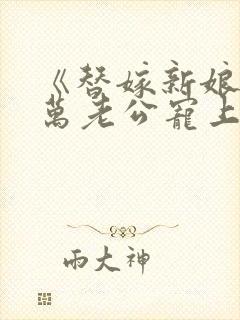 《替嫁新娘
萬老公寵上
雨大神